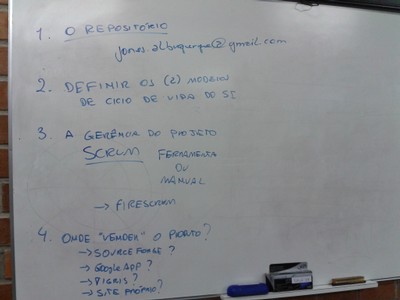 1. O REPOSITÓRIO
jones.albuquerque@gmail.com
2. DEFINIR OS (2) MODELOS
DE CICLO DE VIDA DO SI
3. A GERÊNCIA DO PROJETO
SCRUM FERRAMENTA
OU
MANUAL
→ FIRESCRUM
4. ONDE "VENDER" O PRODUTO?
→ SOURCEFORGE?
→ GOOGLE APP?
→ TIGRIS?
→ SITE PRÓPRIO?